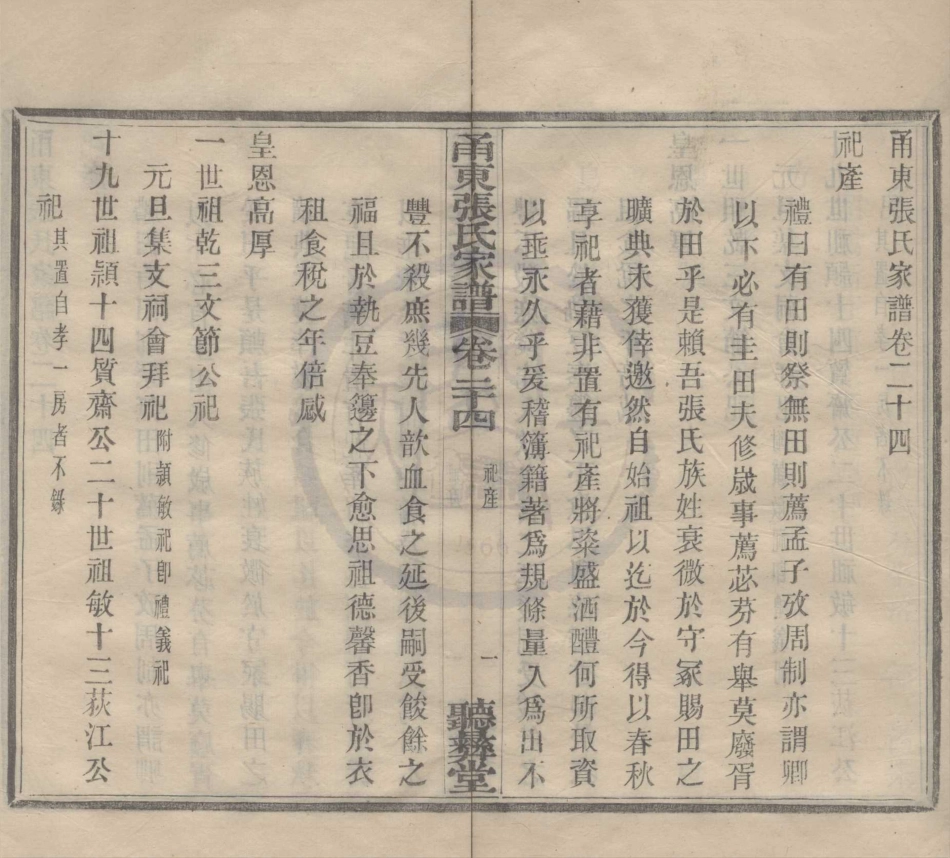 甬東張氏家譜卷二十四
祀產
禮曰有田則祭無田則薦孟子攷周制亦謂卿
以下必有圭田夫修歲事薦苾芬有舉莫廢胥
於田乎是賴吾張氏族姓衰微於守冢賜田之
曠典未獲倖邀然自始祖以迄於今得以春秋
享祀者藉非置有祀產將粢盛酒醴何所取資
以垂永久乎爰稽簿籍著爲規條量入爲出不
甬東張氏家譜 卷二十四 祀產 一 聽彝堂
豐不殺庶幾先人歆血食之延後嗣受餕餘之
福且於執豆奉籩之下愈思祖德馨香卽於衣
租食稅之年倍感
皇恩高厚
一世祖乾三文節公祀
元旦集支祠會拜祀附穎敏祀卽禮義祀
十九世祖穎十四質齋公二十世祖敏十三荻江公
祀其置自孝一房者不錄